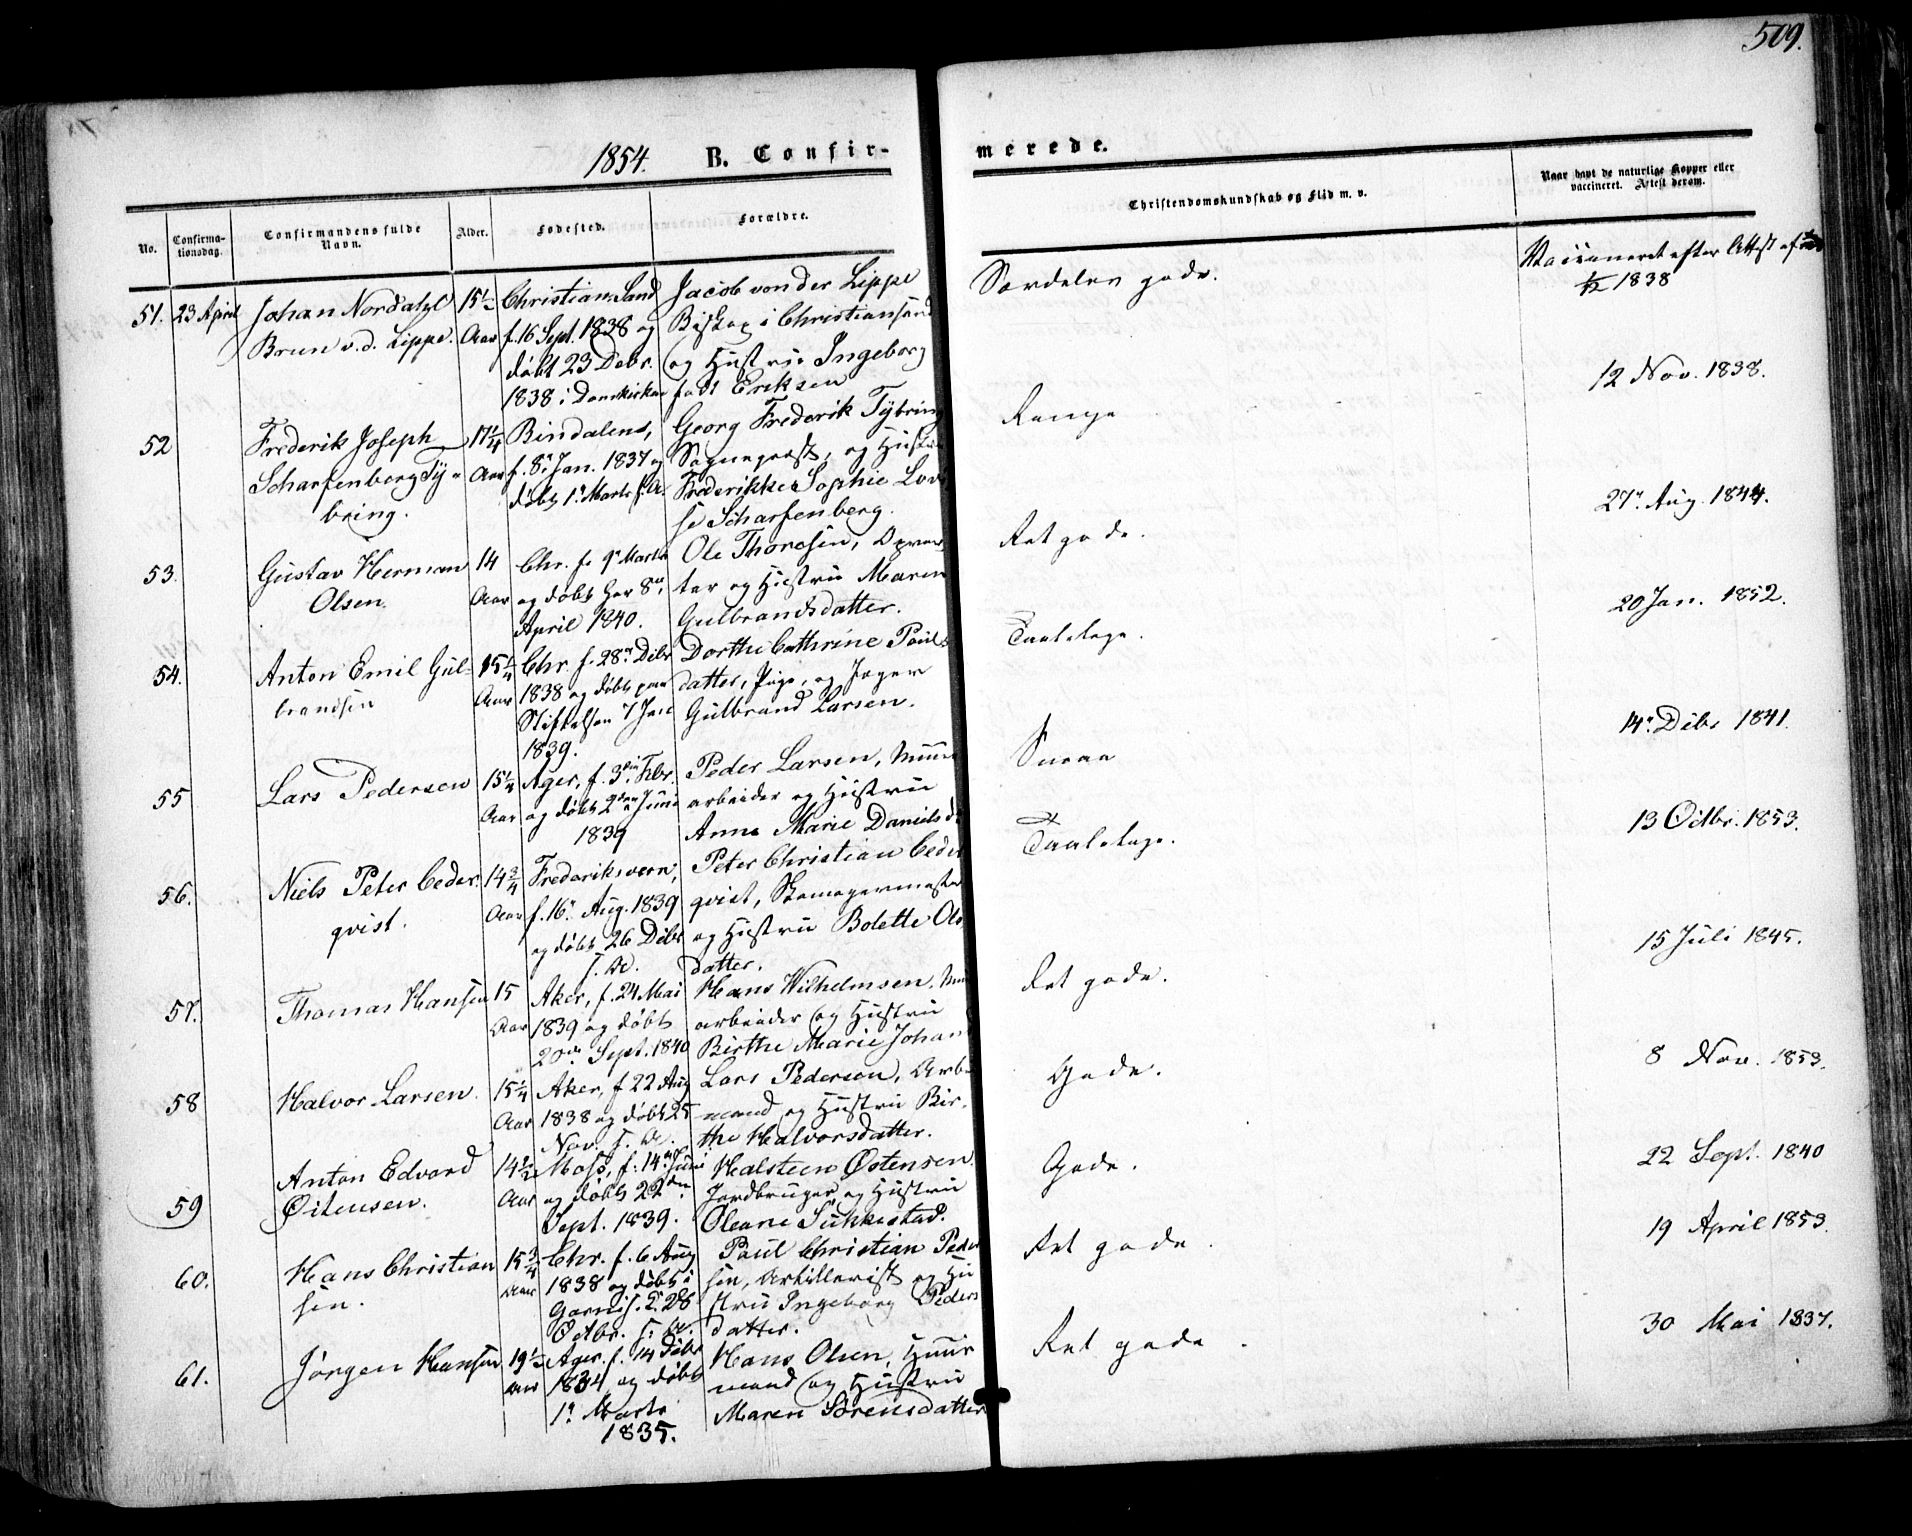 509.
1854. B. Confir-
merede.
No.
Confirma-
tionsdag.
Confirmandens fulde
Navn.
Alder.
Fødested.
Forældre.
Christendomskundskab og Flid m. v.
Naar havt de naturlige Kopper eller
vaccineret. Attest derom.
51. 23 April
Johan Nordahl
Brun v. d. Lippe.
15½
Aar
Christiansand
f. 16 Sept. 1838 og
døbt 23 Debr.
1838 i Domkirken
Jacob von der Lippe
Biskop i Christiansand
og Hustru Ingeborg
født Eriksen
Særdeles gode.
Vaccineret efter Attest af
1838
52
Frederik Joseph
Scharfenberg Ty-
bring.
17¼
Aar
Bindalens,
f. 8n Jan. 1837 og
døbt 1n Marts s. A.
Georg Frederik Tybring
Sogneprest, og Hustru
Frederikke Sophie Lovi
se Scharfenberg.
12 Nov. 1838.
53.
Gustav Herman
Olsen.
14
Aar
Chr. f. 9n Marts
og døbt her 8de
April 1840.
Ole Thoresen, Opvar
ter og Hustru Maren
Gulbrandsdatter.
Ret gode.
27n Aug. 1844.
54.
Anton Emil Gul-
brandsen
15¼
Aar
Chr. f. 28n Debr
1838 og døbt paa
Stiftelsen 7 Jan
1839.
Dorthe Cathrine Pauls
datter, Pige, og Jæger
Gulbrand Larsen.
Taalelige.
20 Jan. 1852.
55
Lars Pedersen
15¼
Aar
Ager, f. 3die Febr.
og døbt 2den Juni
1839
Peder Larsen, Muur
arbeider og Hustru
Anne Marie Daniels d
Smaa
14n Debr 1841.
56.
Niels Peter Ceder
qvist.
14¾
Aar
Frederiksværn,
f. 16n Aug. 1839
og døbt 26 Debr
s. A.
Peter Christian Ceder
qvist, Skomagermester
og Hustru Bolette Ols
datter.
Taalelige.
13 Octbr. 1853.
57.
Thomas Hansen
15
Aar
Aker, f. 24 Mai
1839 og døbt
20de Sept. 1840
Hans Wilhelmsen, Muur
arbeider og Hustru
Birthe Marie Johan
Ret gode.
15 Juli 1845.
58
Halvor Larsen.
15¼
Aar
Aker, f 22 Aug
1838 og døbt 25
Nov. s. A.
Lars Pedersen, Arb-
mand og Hustru Bir-
the Halvorsdatter.
Gode.
8 Nov. 1853.
59
Anton Edvard
Østensen.
14½
Aar
Moss, f. 14n Juni
og døbt 22den
Sept. 1839.
Halsteen Østensen
Jordbruger og Hustru
Oleane Sukkestad.
Gode.
22 Sept. 1840
60.
Hans Christian
sen.
15¾
Aar
Chr. f. 6 Aug
1838 og døbt i
Garnis. K. 28
Octbr. s. A.
Paul Christian Peder
sen, Artillerist og Hu
stru Ingeborg Peders
datter.
Ret gode.
19 April 1853.
61.
Jørgen Hansen
19½
Aar
Ager. f. 14 Debr
1834 og døbt
1n Marts
1835.
Hans Olsen, Huus
mand og Hustru
Maren Sørensdatter
Ret gode.
30 Mai 1837.